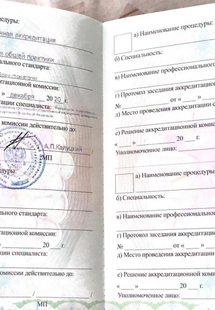 цедуры:
ная аккредитация
и общей практики
ального стандарта:
тационной комиссии:
« » декабря 20 20 г.
тации специалиста:
комиссии действительно до:
А.П.Калуцкий
МП
цедуры:
льного стандарта:
тационной комиссии:
« » 20 г.
тации специалиста:
комиссии действительно до:
МП
а) Наименование процедуры:
б) Специальность:
в) Наименование профессионального
г) Протокол заседания аккредитационной
№ от « »
д) Место проведения аккредитации
е) Решение аккредитационной комиссии
Уполномоченное лицо:
а) Наименование процедуры:
б) Специальность:
в) Наименование профессионального
г) Протокол заседания аккредитационной
№ от « »
д) Место проведения аккредитации
е) Решение аккредитационной комиссии
Уполномоченное лицо: